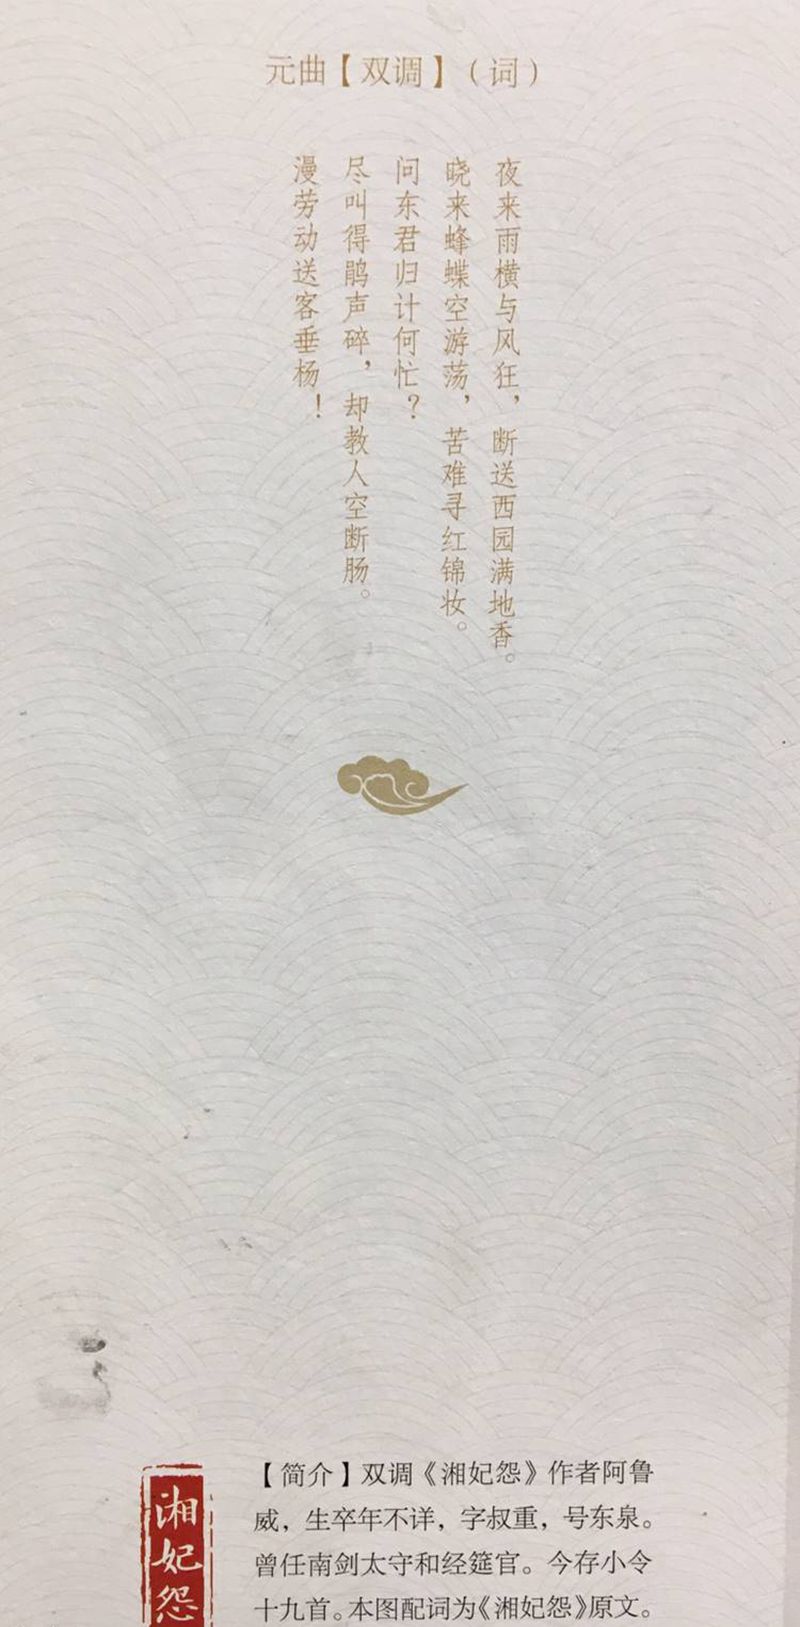 元曲【双调】（词）
夜来雨横与风狂，断送西园满地香。
晓来蜂蝶空游荡，苦难寻红锦妆。
问东君归计何忙？
尽叫得鹃声碎，却教人空断肠。
漫劳动送客垂杨！
湘妃怨
【简介】双调《湘妃怨》作者阿鲁
威，生卒年不详，字叔重，号东泉。
曾任南剑太守和经筵官。今存小令
十九首。本图配词为《湘妃怨》原文。